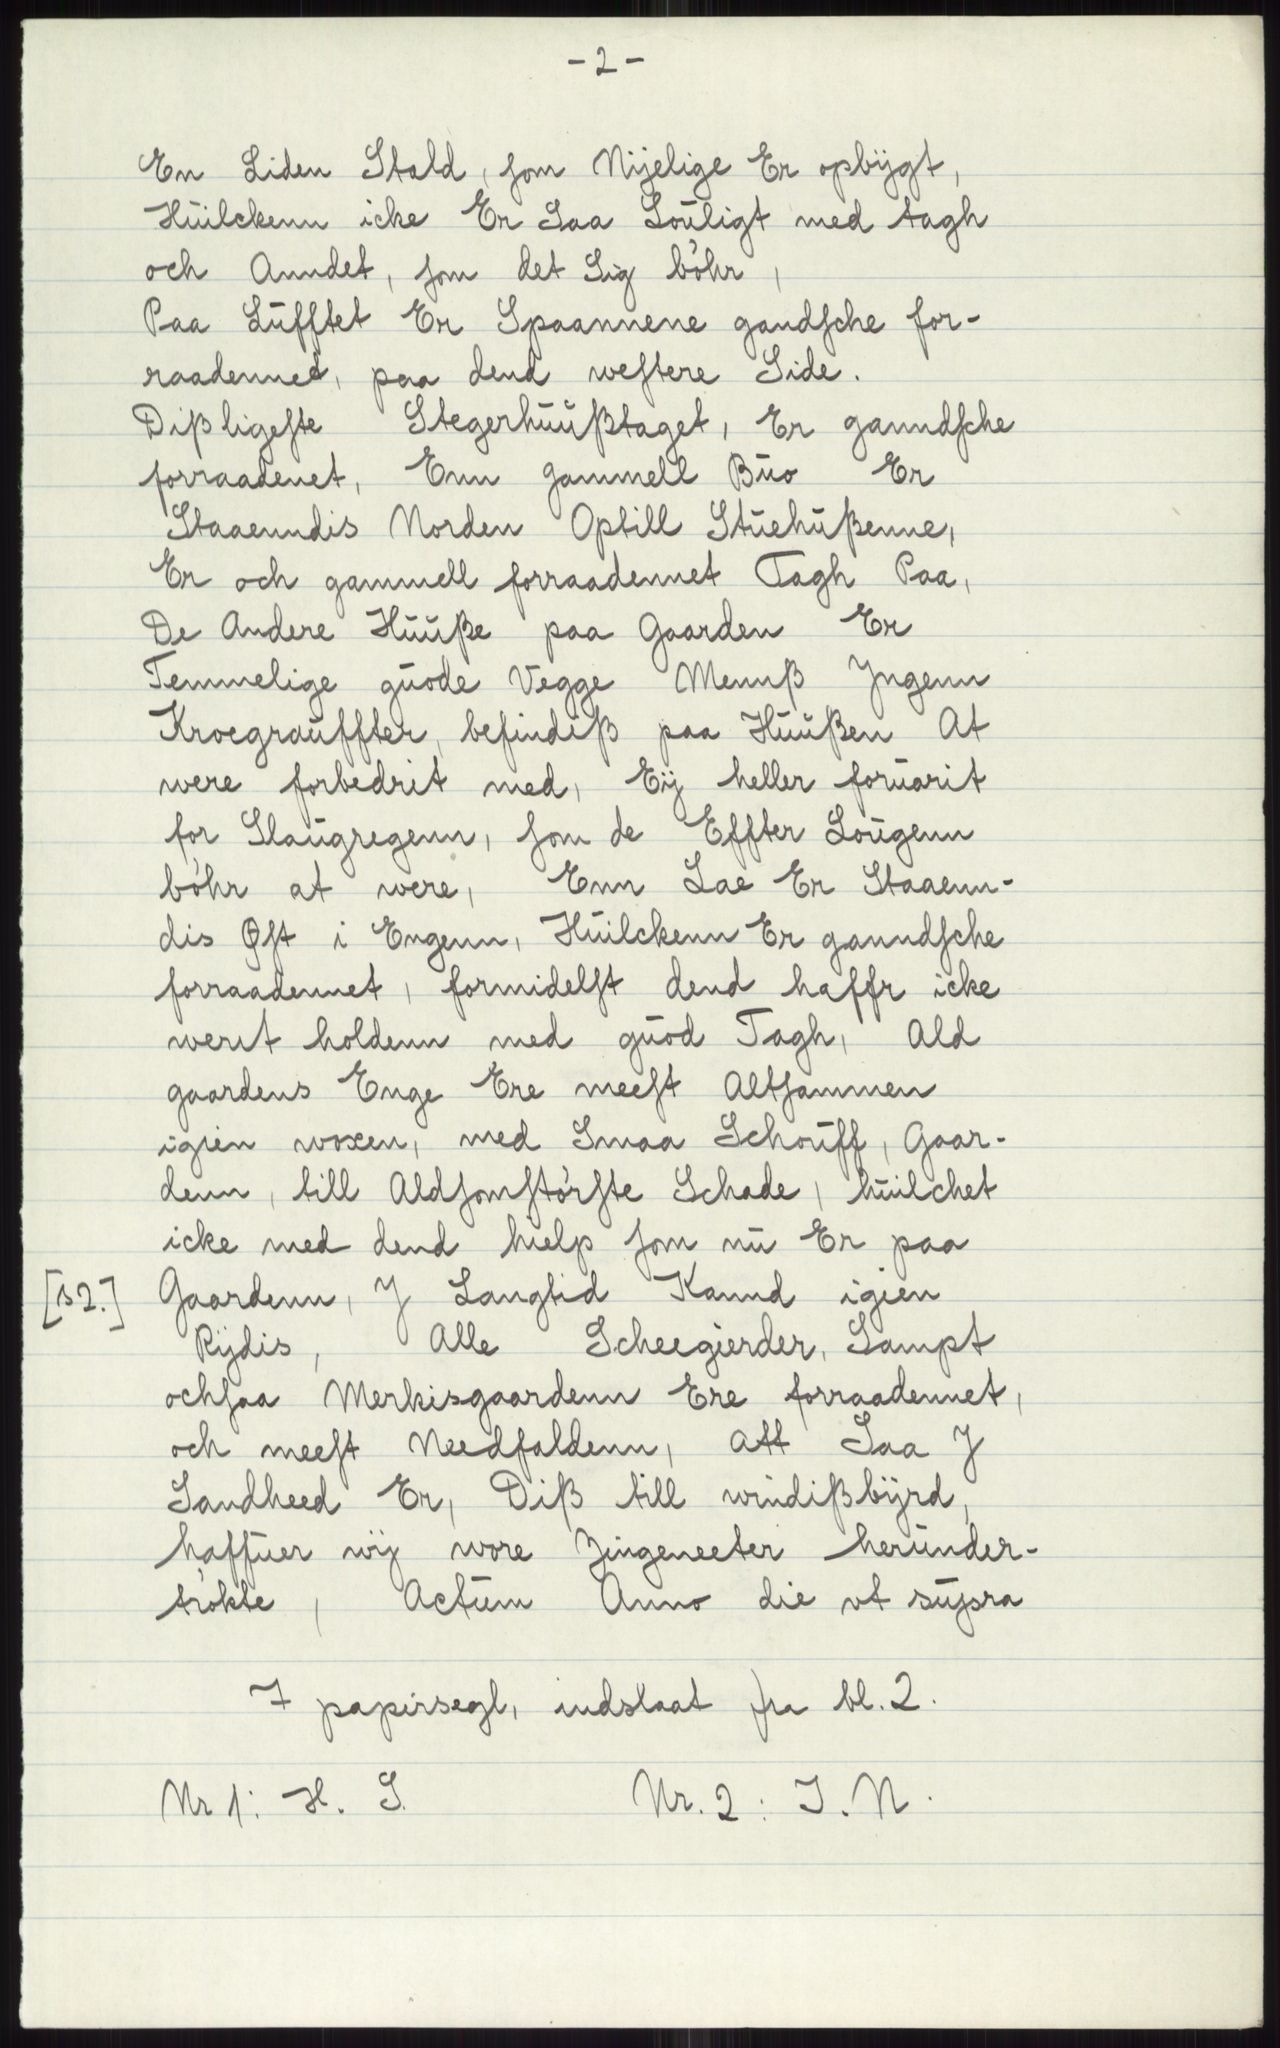 - 2 -
En Liden Stald, som Nijelige Er opbÿgt,
Hŭilckenn icke Er Saa Loŭligt med tagh
och Anndet, som det Sig bóhr,
Paa Lŭfftet Er Spaannene gandsche for-
raadenned, paa dend westere Side.
Dißligeste Stegerhŭŭßtaget, Er ganndsche
forraadenet, Enn gammell Bŭo Er
Staaenndis Norden Optill Stŭehŭßenne,
Er och gammell forraadennet Tagh Paa,
De Andere Hŭŭße paa Gaarden Er
Temmelige gŭode Vegge Mennß Jngenn
Kroegraŭffter, befindiß paa Hŭŭßen At
were forbedrit med, Eÿ heller forŭarit
for Slaŭgregenn, som de Effter Loŭgenn
bóhr at were, Enn Lae Er Staaenn-
dis Øst i Engenn, Hŭilckenn Er ganndsche
forraadennet, formidelst dend haffr icke
werit holdenn med gŭod Tagh, Ald
gaardens Enge Ere meest Altsammen
igien woxen, med Smaa Schoŭff, Gaar-
denn, till Aldsomstórste Schade, hŭilchet
icke med dend hielp som nŭ Er paa
[s 2.] Gaardenn, J Langtid Kannd igien
Rÿdis, Alle Scheegierder, Sampt
ochsaa Merkisgaardenn Ere forraadennet,
och meest Needfaldenn, att Saa J
Sandheed Er, Diß till windißbÿrd,
haffŭer wÿ wore Zingeneeter herŭnder-
trókte, Actŭm Anno die ut sŭpra
7 papirsegl, indslaat fra bl. 2.
Nr 1: H. S. Nr. 2: J. N.